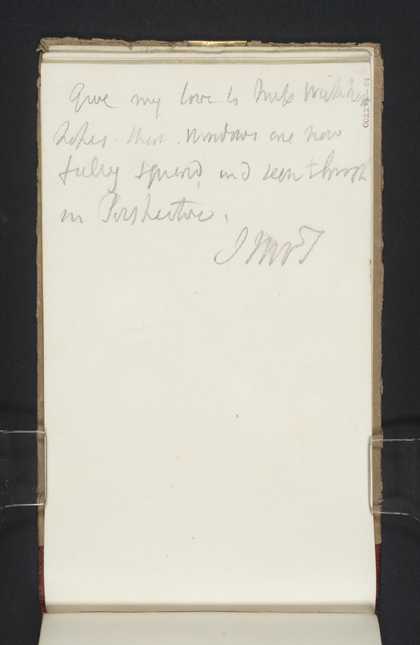 Give my love to Miss
hopes their windows are now
fully squared and seen through
in Perspective.
JMWT